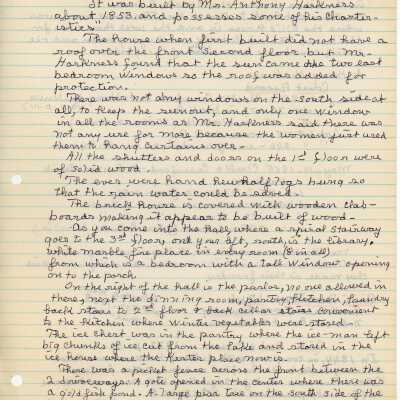 It was built by Mr. Anthony Harkness
about 1853 and possesses some of his Charter-
istics"
The house when first built did not have a
roof over the front second floor but Mr-
Harkness found that the sun came the two east
bedroom windows so the roof was added for
protection.
There was not any windows on the south side at
all, to keep the sun out, and only one window
in all the rooms as Mr. Harkness said there was
not any use for more because the women just used
them to hang curtains over-
All the shutters and doors on the 1st floor were
of solid wood.
The eves were hand hewn half logs hung so
that the rain water could be saved.
The brick house is covered with wooden clab-
boards making it appear to be built of wood-
As you come into the hall, where a spiral stairway
goes to the 3rd floor, on your left, south, is the library,
white marble fire place in every room (8 in all)
from which is a bedroom with a tall window opening
on to the porch
On the right of the hall is the parlor, no one allowed in
there, next the dinning room, pantry, kitchen, laundry
back stairs to 2nd floor & back cellar stairs convenient
to the kitchen where winter vegetables were stored
The ice chest was in the pantry where the ice-man left
big chunks of ice cut from the lake and stored in the
ice house where the place now is.
There was a picket fence across the front between the
2 driveways. A gate opened in the center where there was
a gold fish pond. A large pear tree on the south side of the